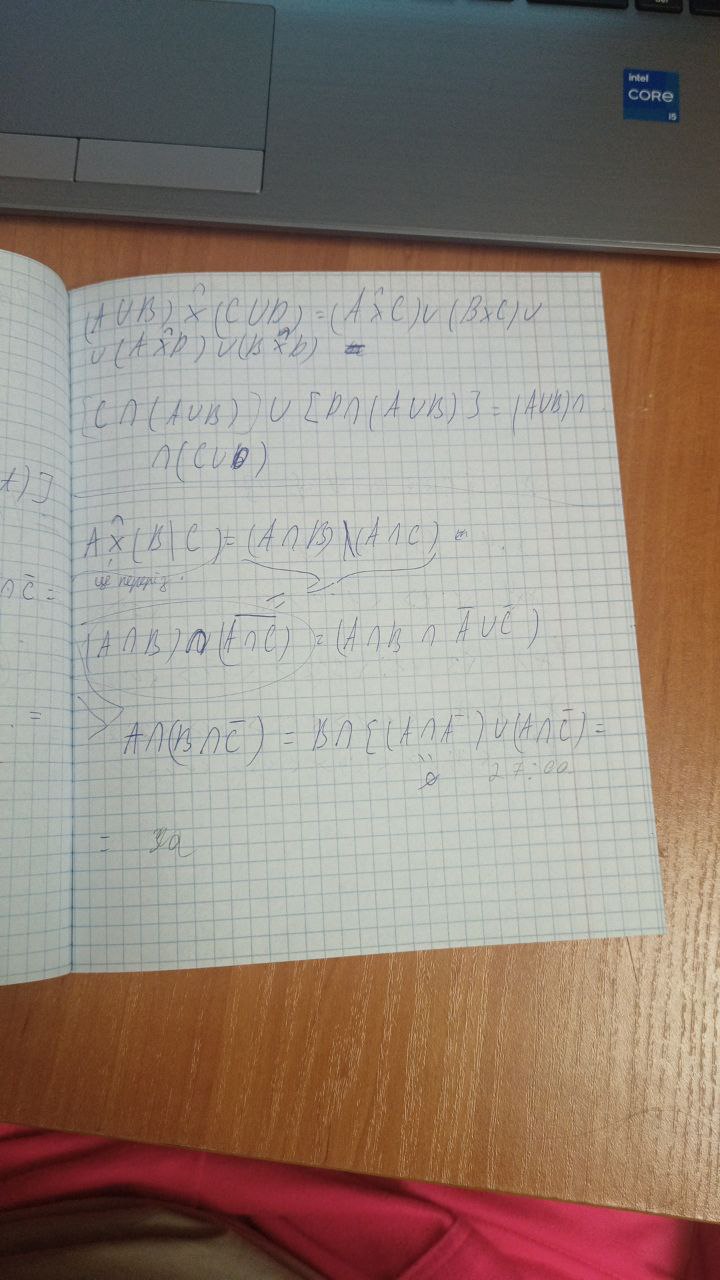 intel
CORE
i5
(A∪B) x̂ (C∪D) = (A x̂ C) ∪ (B x C) ∪
∪ (A x̂ D) ∪ (B x̂ D)
[C∩(A∪B)] ∪ [D∩(A∪B)] = (A∪B)∩
∩(C∪D)
A x̂ (B \ C) = (A∩B) \ (A∩C) =
це переріз
=
(A∩B) ∩ (A̅∩̅C̅) = (A∩B ∩ A̅∪C̅)
A∩(B∩C̅) = B∩[(A∩A̅) ∪ (A∩C̅) =
27:00
=
t)]
∩ C̅ =
. =